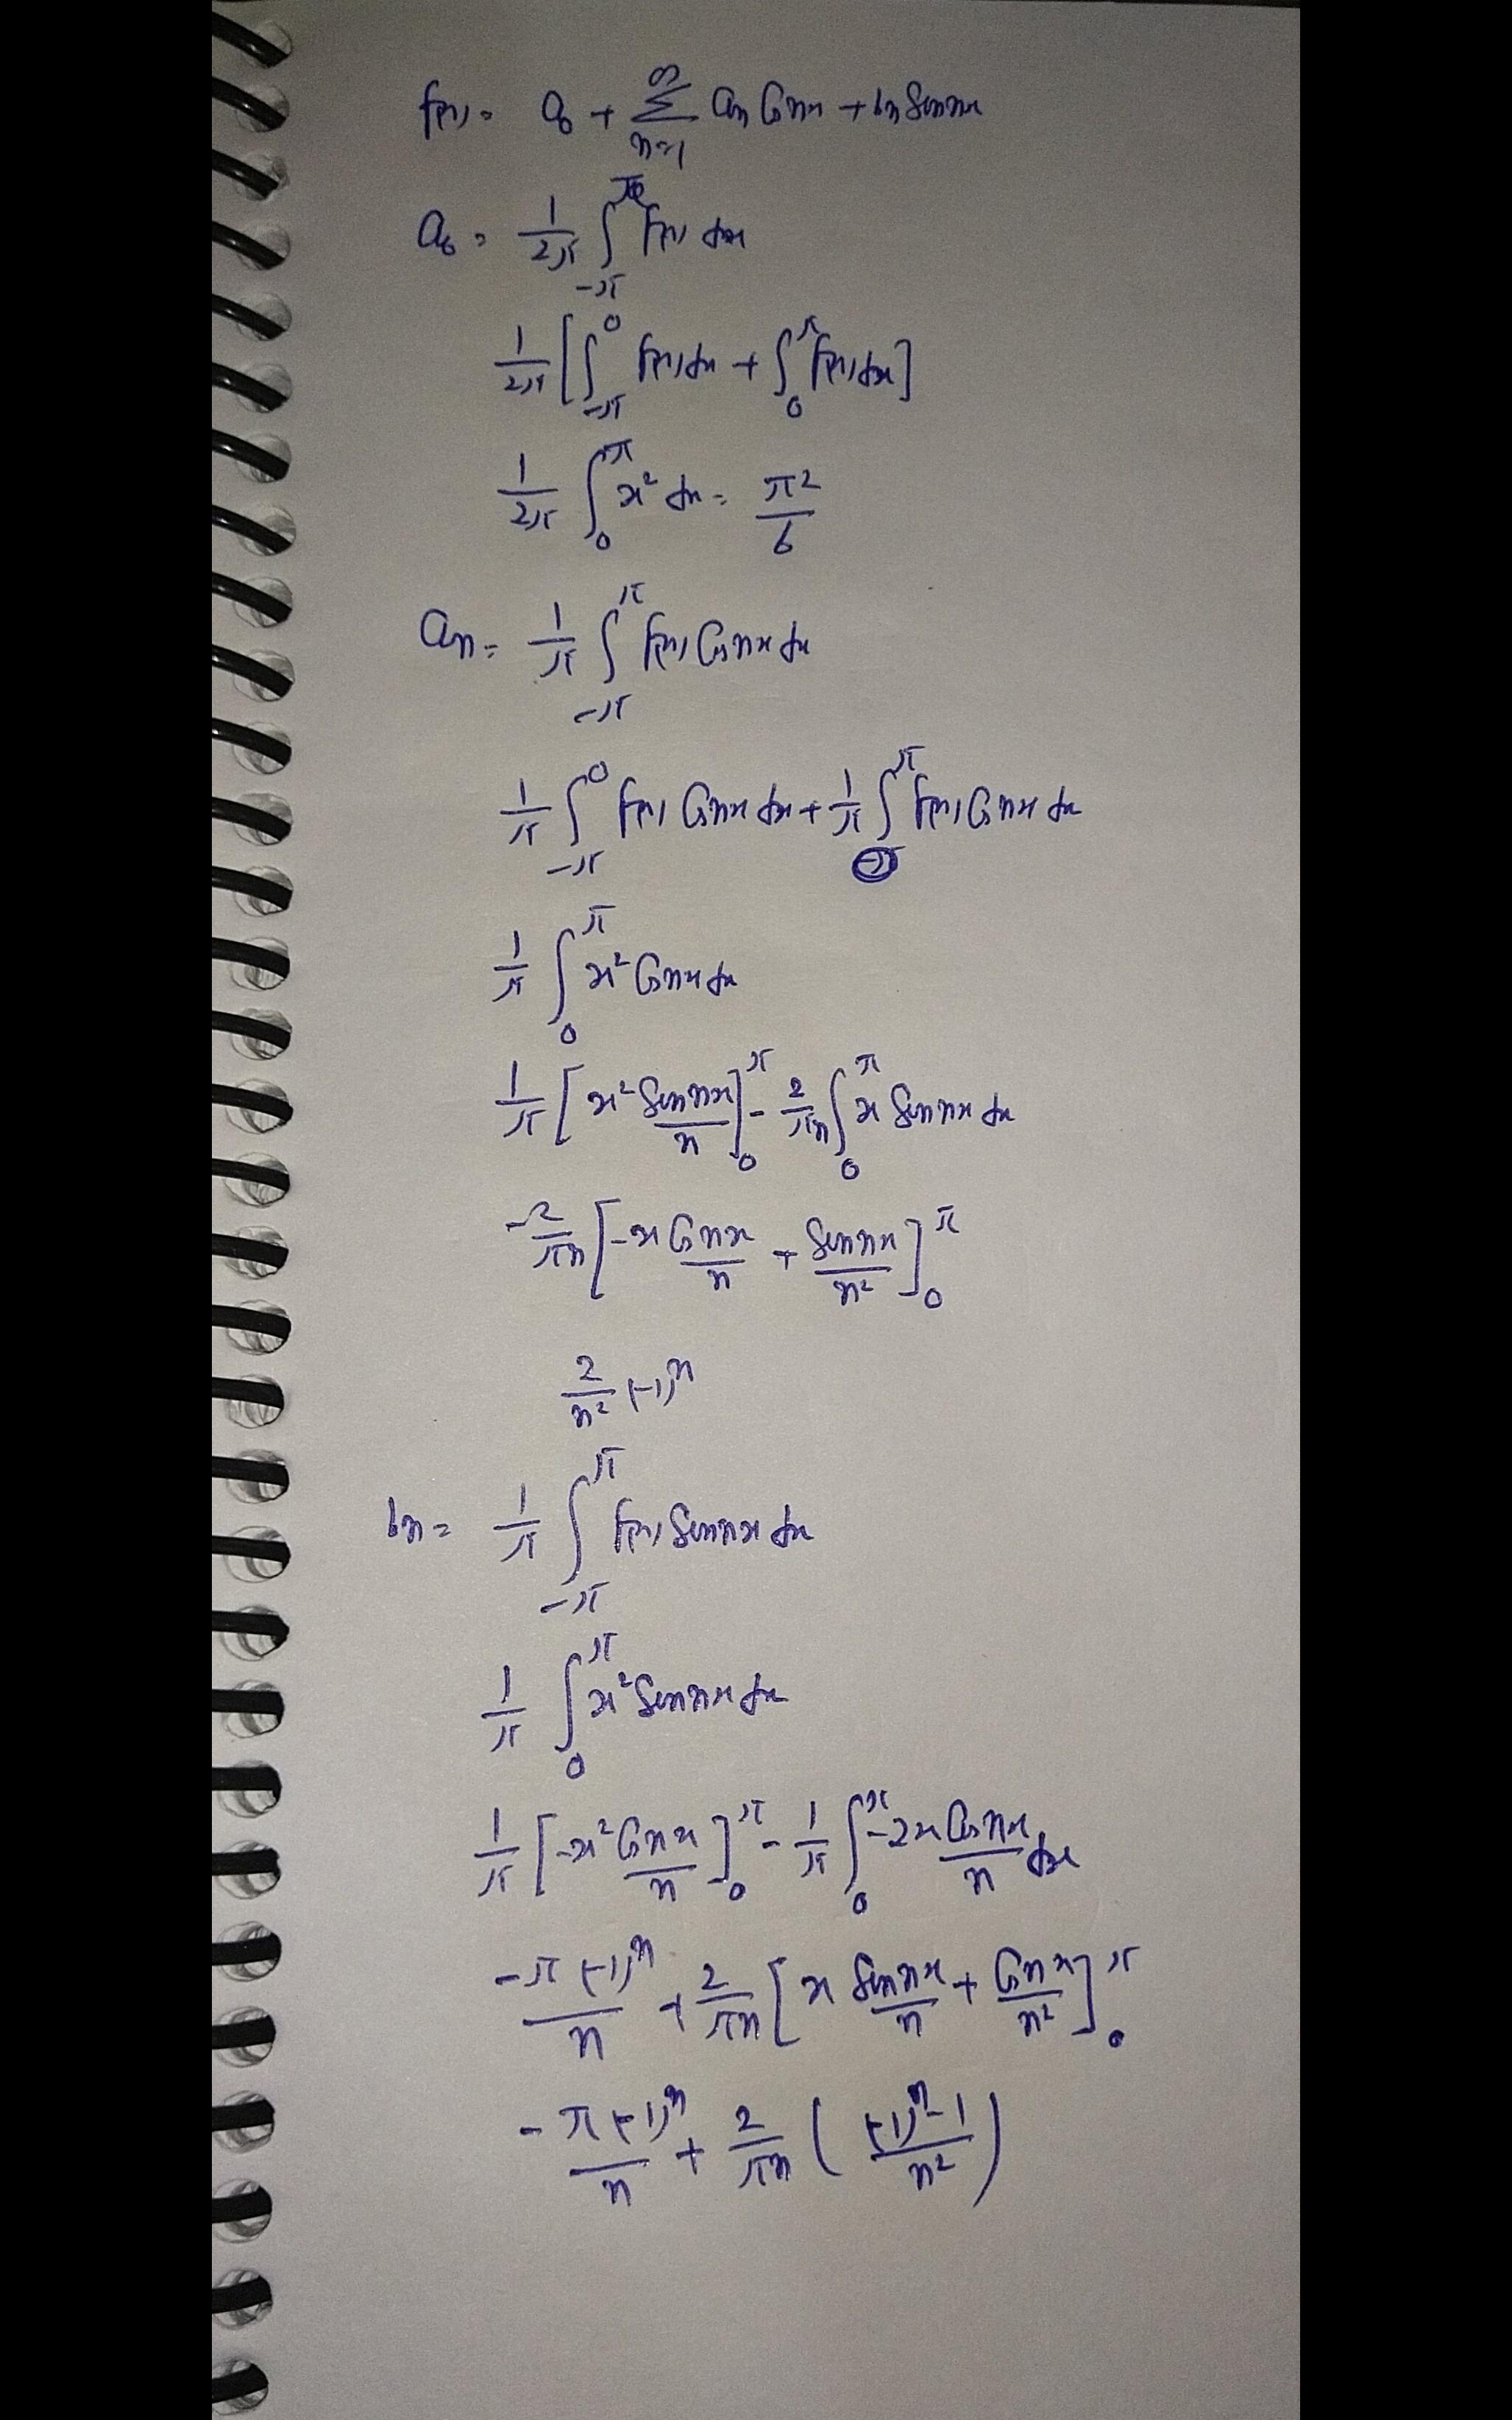 f(x) = a₀ + ∑_{n=1}^{∞} an Cosnx + bn Sinnx
a₀ = 1/2π ∫_{-π}^{π} f(x) dx
1/2π [∫_{-π}^{0} f(x)dx + ∫_{0}^{π} f(x)dx]
1/2π ∫_{0}^{π} x² dx = π²/6
an = 1/π ∫_{-π}^{π} f(x) Cosnx dx
1/π ∫_{-π}^{0} f(x) Cosnx dx + 1/π ∫^{π} f(x) Cosnx dx
1/π ∫_{0}^{π} x² Cosnx dx
1/π [x² Sinnx/n]_{0}^{π} - 2/πn ∫_{0}^{π} x Sinnx dx
-2/πn [-x Cosnx/n + Sinnx/n²]_{0}^{π}
2/n² (-1)ⁿ
bn = 1/π ∫_{-π}^{π} f(x) Sinnx dx
1/π ∫_{0}^{π} x² Sinnx dx
1/π [-x² Cosnx/n]_{0}^{π} - 1/π ∫_{0}^{π} -2x Cosnx/n dx
-π(-1)ⁿ/n + 2/πn [x Sinnx/n + Cosnx/n²]_{0}^{π}
-π(-1)ⁿ/n + 2/πn ((-1)ⁿ-1/n²)